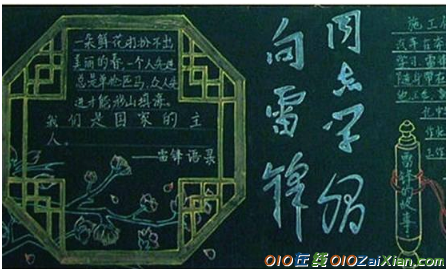 一朵鲜花打扮不出
美丽的春,一个人先进
总是单枪匹马,众人先
进才能移山填海。
我们是国家的主
人。
——雷锋语录
向雷锋
同志学习
施工
雷锋的故事
010在线 010ZaiXian.com